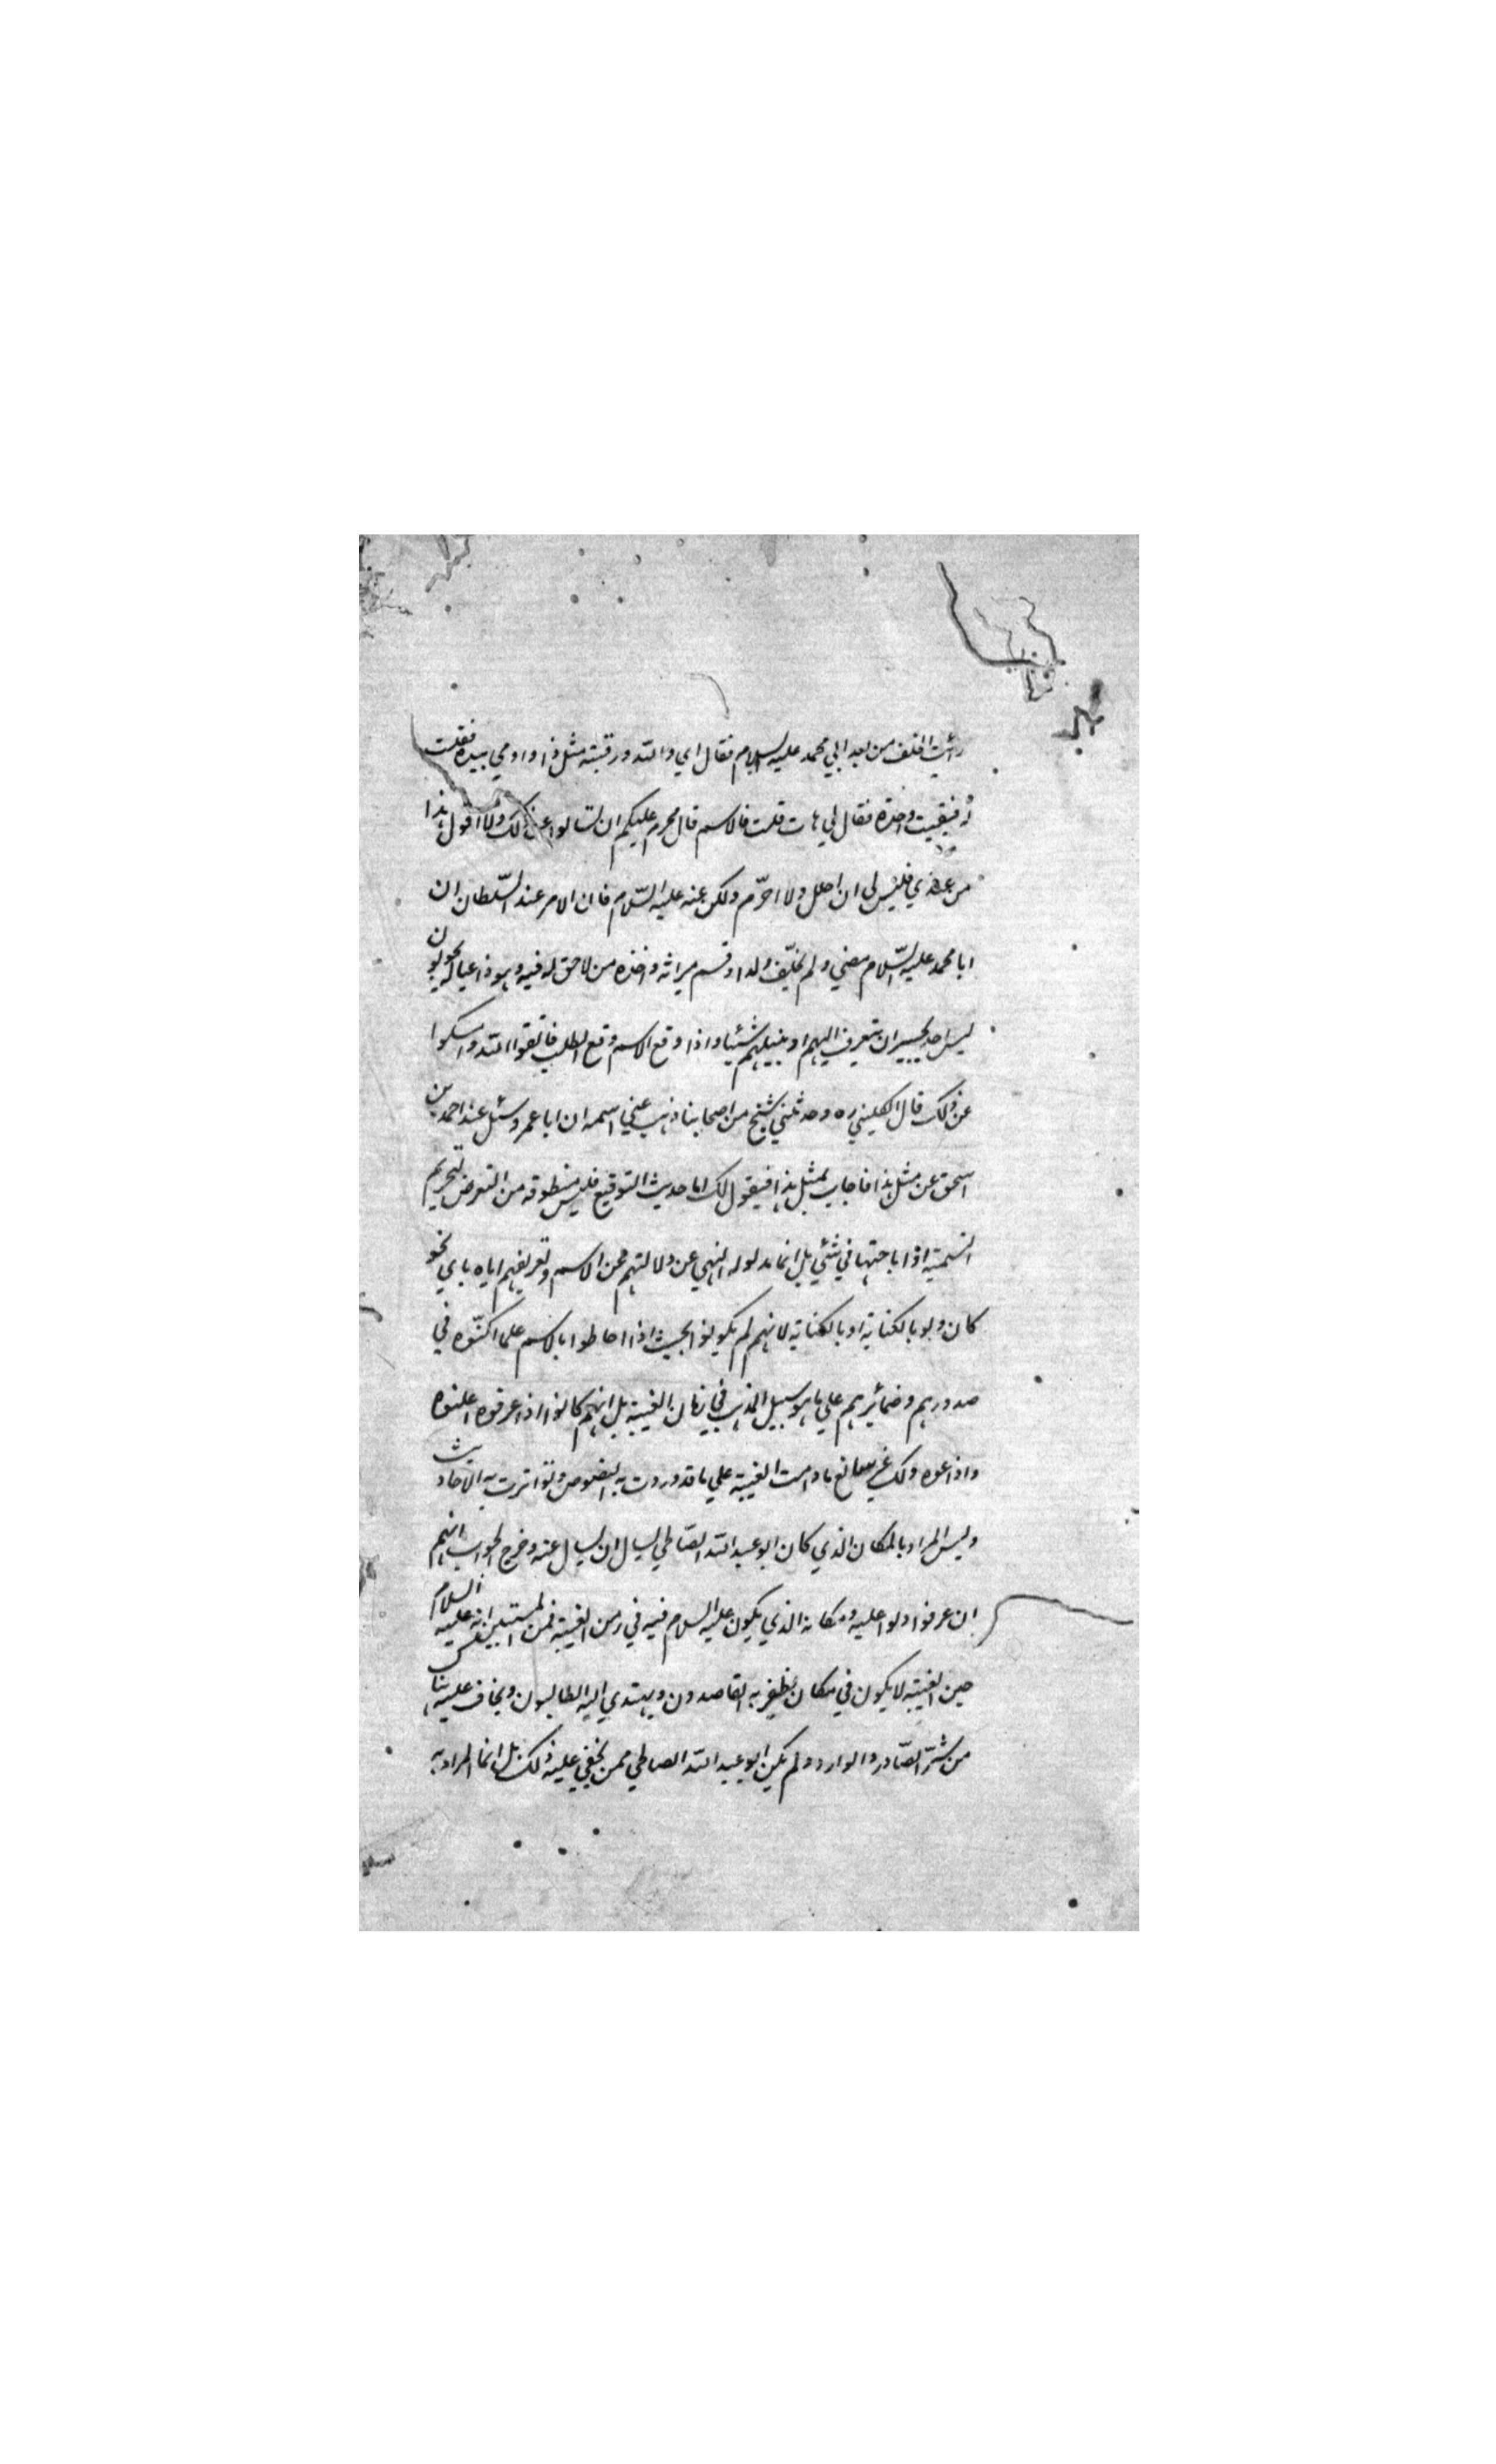 رأيت الخلف من بعد ابي محمد عليه السلام فقال اي والله ورقبته مثل ذا واومي بيده فقلت
له فبقيت واحدة فقال لي هات قلت فالاسم قال محرم عليكم ان تسالوا عن ذلك ولا اقول هذا
من عندي فليس لي ان احلل ولا احرّم ولكن عنه عليه السّلام فان الامر عند السّلطان ان
ابا محمد عليه السّلام مضي ولم يخلّف ولدا وقسم ميراثه واخذه من لا حق له فيه وهو ذا عياله يجولون
ليس احد يجسر ان يتعرف اليهم او ينيلهم شيئا واذا وقع الاسم وقع الطلب فاتقوا الله وامسكوا
عن ذلك قال الكليني ره وحدثني شيخ من اصحابنا ذهب عني اسمه ان ابا عمرو سئل عند احمد بن
اسحق عن مثل هذا فاجاب بمثل هذا فيقول لك اما حديث التوقيع فليس منطوقه من التعرض لتحريم
التسمية او اباحتها في شئي بل انما مدلوله النهي عن دلالتهم علي الاسم وتعريفهم اياه باي نحو
كان ولو بالكناية او بالكناية لانهم لم يكونوا بحيث اذا احاطوا بالاسم علما اكنّوه في
صدورهم وضمائرهم علي ما هو سبيل المذهب في زمان الغيبة بل انهم كانوا اذا عرفوه اعلنوه
واذاعوه وذلك غير سائغ ما دامت الغيبة علي ما قد وردت به النصوص وتواترت به الاحاديث
وليس المراد بالمكان الذي كان ابو عبد الله الصّالحي يسال ان يسال عنه وخرج الجواب انهم
ان عرفوا دلوا عليه ومكانه الذي يكون عليه السلام فيه في زمن الغيبة فمن المستبين انه عليه السلام
حين الغيبة لا يكون في مكان يظفر به القاصدون ويهتدي اليه الطالبون ويخاف عليه هنالك
من شرّ الصّادر والوارد ولم يكن ابو عبد الله الصالحي ممن يخفي عليه ذلك بل انما المراد به